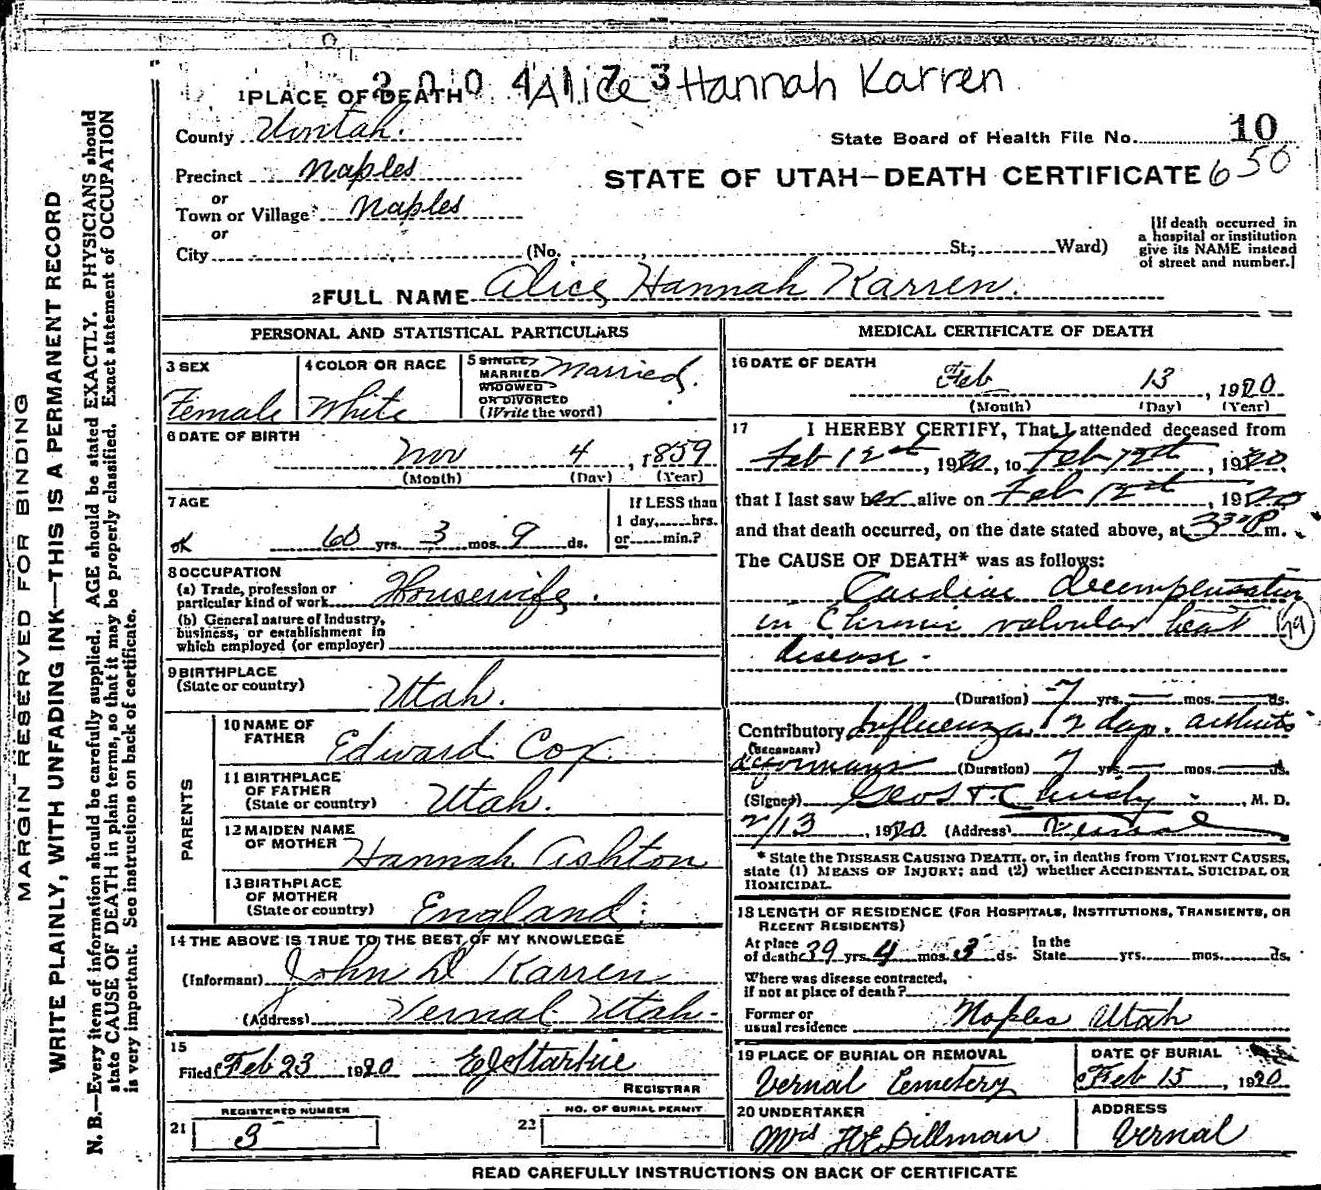 2004173 Alice Hannah Karren
1 PLACE OF DEATH
County Uintah.
State Board of Health File No. 10
650
Precinct Naples
STATE OF UTAH—DEATH CERTIFICATE
or
Town or Village Naples
or
City (No. , St.; Ward)
[If death occurred in
a hospital or institution
give its NAME instead
of street and number.]
2 FULL NAME Alice Hannah Karren.
PERSONAL AND STATISTICAL PARTICULARS
3 SEX
Female
4 COLOR OR RACE
White
5 SINGLE
MARRIED
WIDOWED
OR DIVORCED
(Write the word)
Married.
6 DATE OF BIRTH
Nov 4, 1859
(Month) (Day) (Year)
7 AGE
ok 60 yrs. 3 mos. 9 ds.
If LESS than
1 day, hrs.
or min.?
8 OCCUPATION
(a) Trade, profession or
particular kind of work Housewife.
(b) General nature of Industry,
business, or establishment in
which employed (or employer)
9 BIRTHPLACE
(State or country)
Utah.
PARENTS
10 NAME OF
FATHER
Edward Cox
11 BIRTHPLACE
OF FATHER
(State or country)
Utah.
12 MAIDEN NAME
OF MOTHER
Hannah Ashton
13 BIRTHPLACE
OF MOTHER
(State or country)
England.
14 THE ABOVE IS TRUE TO THE BEST OF MY KNOWLEDGE
(Informant) John D Karren
(Address) Vernal Utah.
15
Filed Feb 23 1920 E J Starkie
REGISTRAR
REGISTERED NUMBER
21 3
NO. OF BURIAL PERMIT
22
MEDICAL CERTIFICATE OF DEATH
16 DATE OF DEATH
Feb 13, 1920
(Month) (Day) (Year)
17 I HEREBY CERTIFY, That I attended deceased from
Feb 12th, 1920, to Feb 12th, 1920,
that I last saw her alive on Feb 12th, 1920
and that death occurred, on the date stated above, at 3 30 P m.
The CAUSE OF DEATH* was as follows:
Cardiac decompensation
in Chronic valvular heart 79
disease.
(Duration) 7 yrs. — mos. — ds.
Contributory Influenza 2 day. arthritis
(SECONDARY)
deformans (Duration) 7 yrs. — mos. — ds.
(Signed) Geo. Christy, M. D.
2/13, 1920 (Address) Vernal
* State the DISEASE CAUSING DEATH, or, in deaths from VIOLENT CAUSES,
state (1) MEANS OF INJURY; and (2) whether ACCIDENTAL, SUICIDAL OR
HOMICIDAL.
18 LENGTH OF RESIDENCE (FOR HOSPITALS, INSTITUTIONS, TRANSIENTS, OR
RECENT RESIDENTS)
At place
of death 39 yrs. 4 mos. 3 ds.
In the
State yrs. mos. ds.
Where was disease contracted,
if not at place of death?
Former or
usual residence Naples Utah
19 PLACE OF BURIAL OR REMOVAL
Vernal Cemetery
DATE OF BURIAL
Feb 15, 1920
20 UNDERTAKER
Mrs H E Dillman
ADDRESS
Vernal
READ CAREFULLY INSTRUCTIONS ON BACK OF CERTIFICATE
MARGIN RESERVED FOR BINDING
WRITE PLAINLY, WITH UNFADING INK—THIS IS A PERMANENT RECORD
N. B.—Every item of information should be carefully supplied. AGE should be stated EXACTLY. PHYSICIANS should
state CAUSE OF DEATH in plain terms, so that it may be properly classified. Exact statement of OCCUPATION
is very important. See instructions on back of certificate.